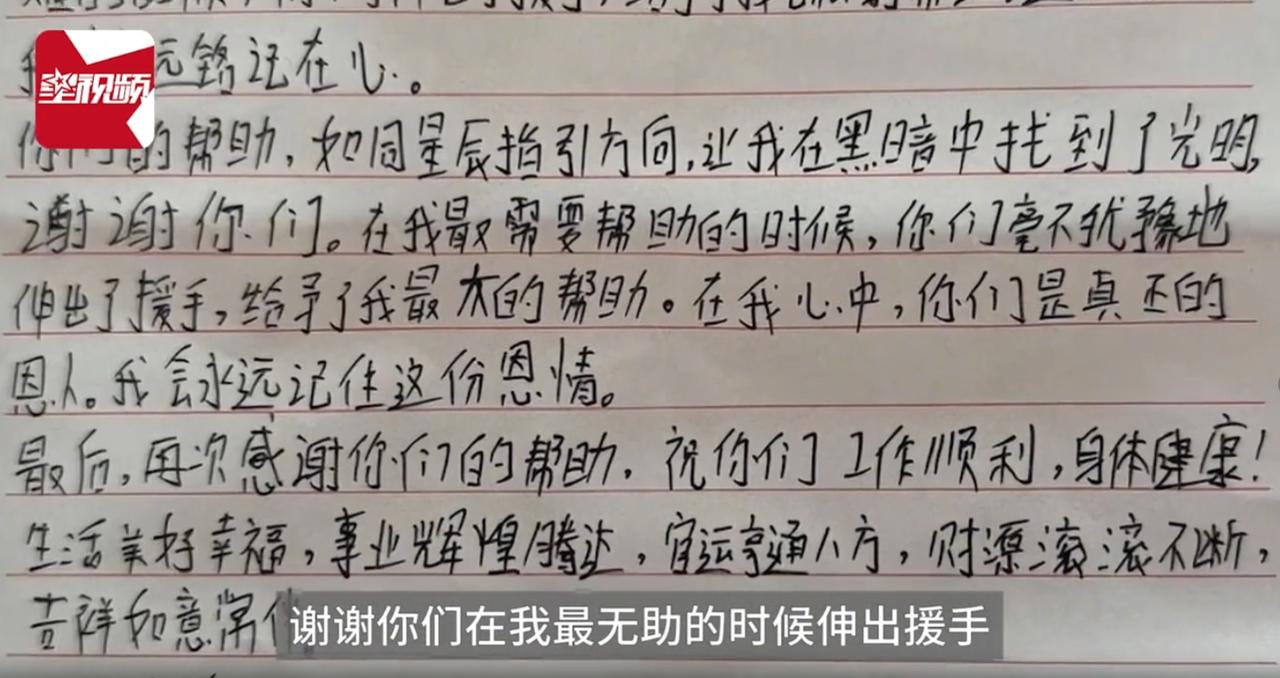 远铭记在心。
星视频
你们的帮助，如同星辰指引方向，让我在黑暗中找到了光明，
谢谢你们。在我最需要帮助的时候，你们毫不犹豫地
伸出了援手，给予了我最大的帮助。在我心中，你们是真正的
恩人。我会永远记住这份恩情。
最后，再次感谢你们的帮助，祝你们工作顺利，身体健康！
生活美好幸福，事业辉煌腾达，官运亨通八方，财源滚滚不断，
吉祥如意常伴
谢谢你们在我最无助的时候伸出援手